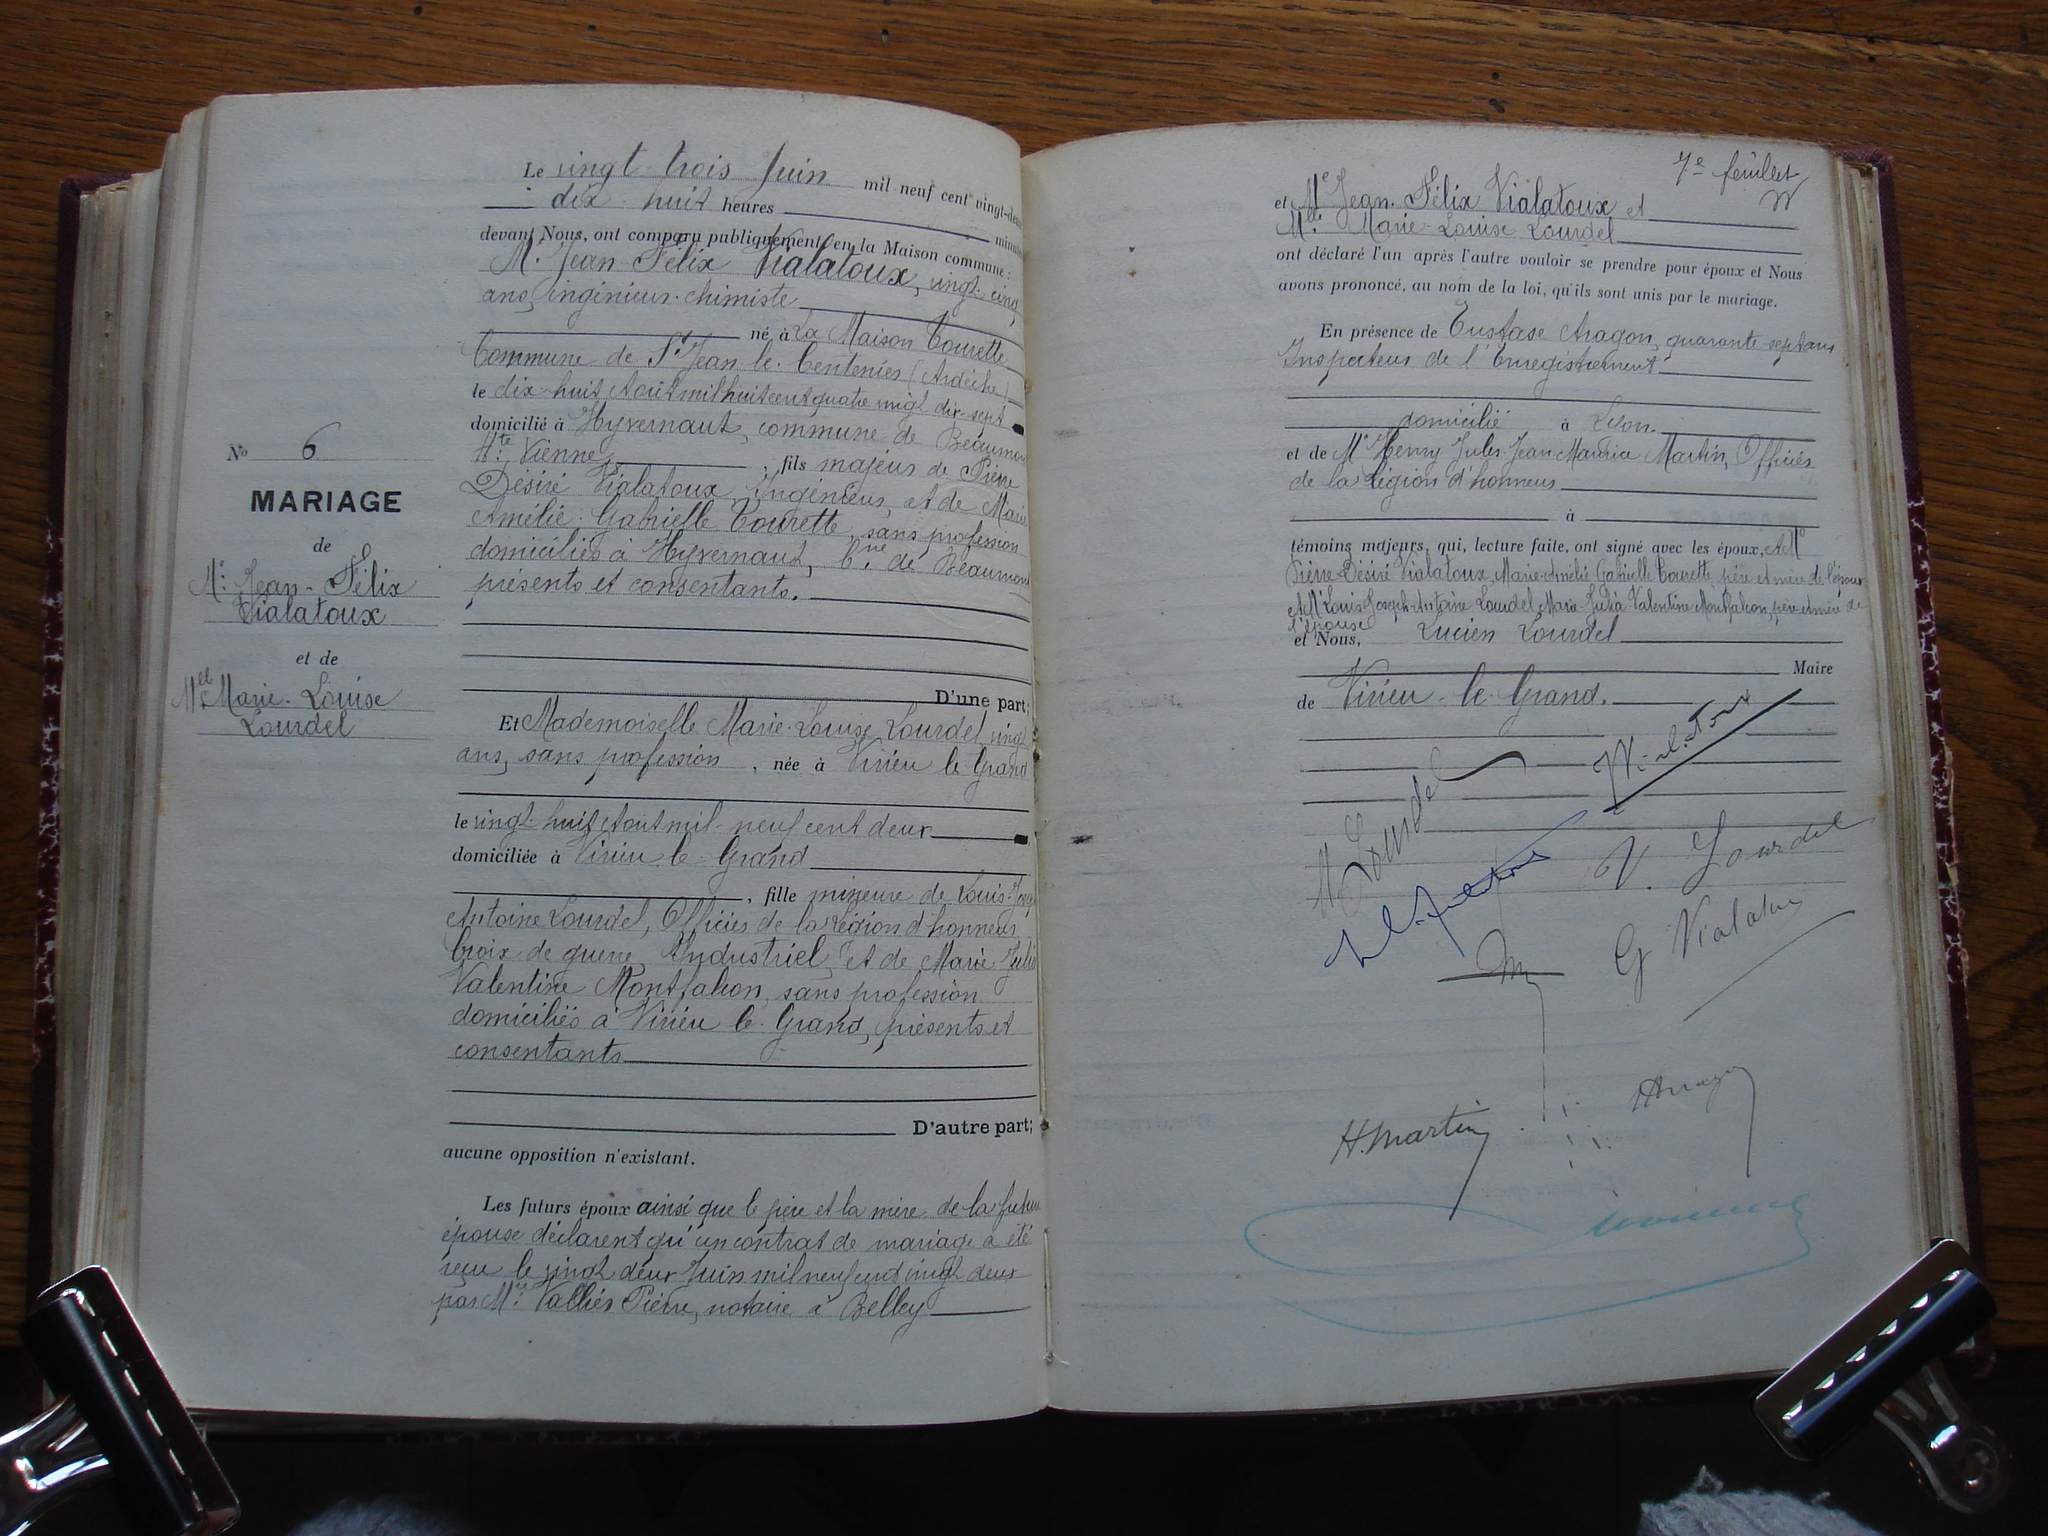 No 6
MARIAGE
de
Mr. Jean-Félix
Vialatoux
et de
Melle Marie-Louise
Lourdel
Le vingt trois Juin mil neuf cent vingt-deux
dix huit heures minutes
devant Nous, ont comparu publiquement en la Maison commune :
M. Jean Félix Vialatoux, vingt-cinq
ans, ingénieur-chimiste
né à La Maison Tourette
Commune de St Jean le Centenier (Ardèche)
le dix-huit Août mil huit cent quatre vingt dix-sept
domicilié à Hyvernaut, commune de Beaumont
Hte Vienne, fils majeur de Pierre
Désiré Vialatoux, Ingénieur, et de Marie
Amélie Gabrielle Tourette, sans profession
domiciliés à Hyvernaut, Cne de Beaumont
présents et consentants.
D'une part;
Et Mademoiselle Marie-Louise Lourdel, vingt
ans, sans profession, née à Virieu le Grand
le vingt-huit Aout mil neuf cent deux
domiciliée à Virieu le Grand
, fille mineure de Louis-Joseph
Antoine Lourdel, Officier de la Légion d'honneur
Croix de guerre, Industriel, et de Marie Julia
Valentine Montfalcon, sans profession
domiciliés à Virieu le Grand, présents et
consentants
D'autre part;
aucune opposition n'existant.
Les futurs époux ainsi que le père et la mère de la future
épouse déclarent qu'un contrat de mariage a été
reçu le vingt deux Juin mil neuf cent vingt deux
par Me Vallier Pierre, notaire à Belley
7e feuillet
et Mr Jean-Félix Vialatoux et
Melle Marie-Louise Lourdel
ont déclaré l'un après l'autre vouloir se prendre pour époux et Nous
avons prononcé, au nom de la loi, qu'ils sont unis par le mariage.
En présence de Eustase Aragon, quarante sept ans
Inspecteur de l'Enregistrement
domicilié à Lyon.
et de Mr Henry Jules Jean Maurice Martin, Officier
de la Légion d'honneur
à
témoins majeurs, qui, lecture faite, ont signé avec les époux, et Mr
Pierre Désiré Vialatoux, Marie-Amélie Gabrielle Tourette père et mère de l'époux
et Mr Louis Joseph-Antoine Lourdel, Marie Julia Valentine Montfalcon, père et mère de
l'épouse
et Nous, Lucien Lourdel
Maire
de Virieu-le-Grand.
M Lourdel
Vialatoux
V. Lourdel
G Vialatoux
H. Martin
Aragon